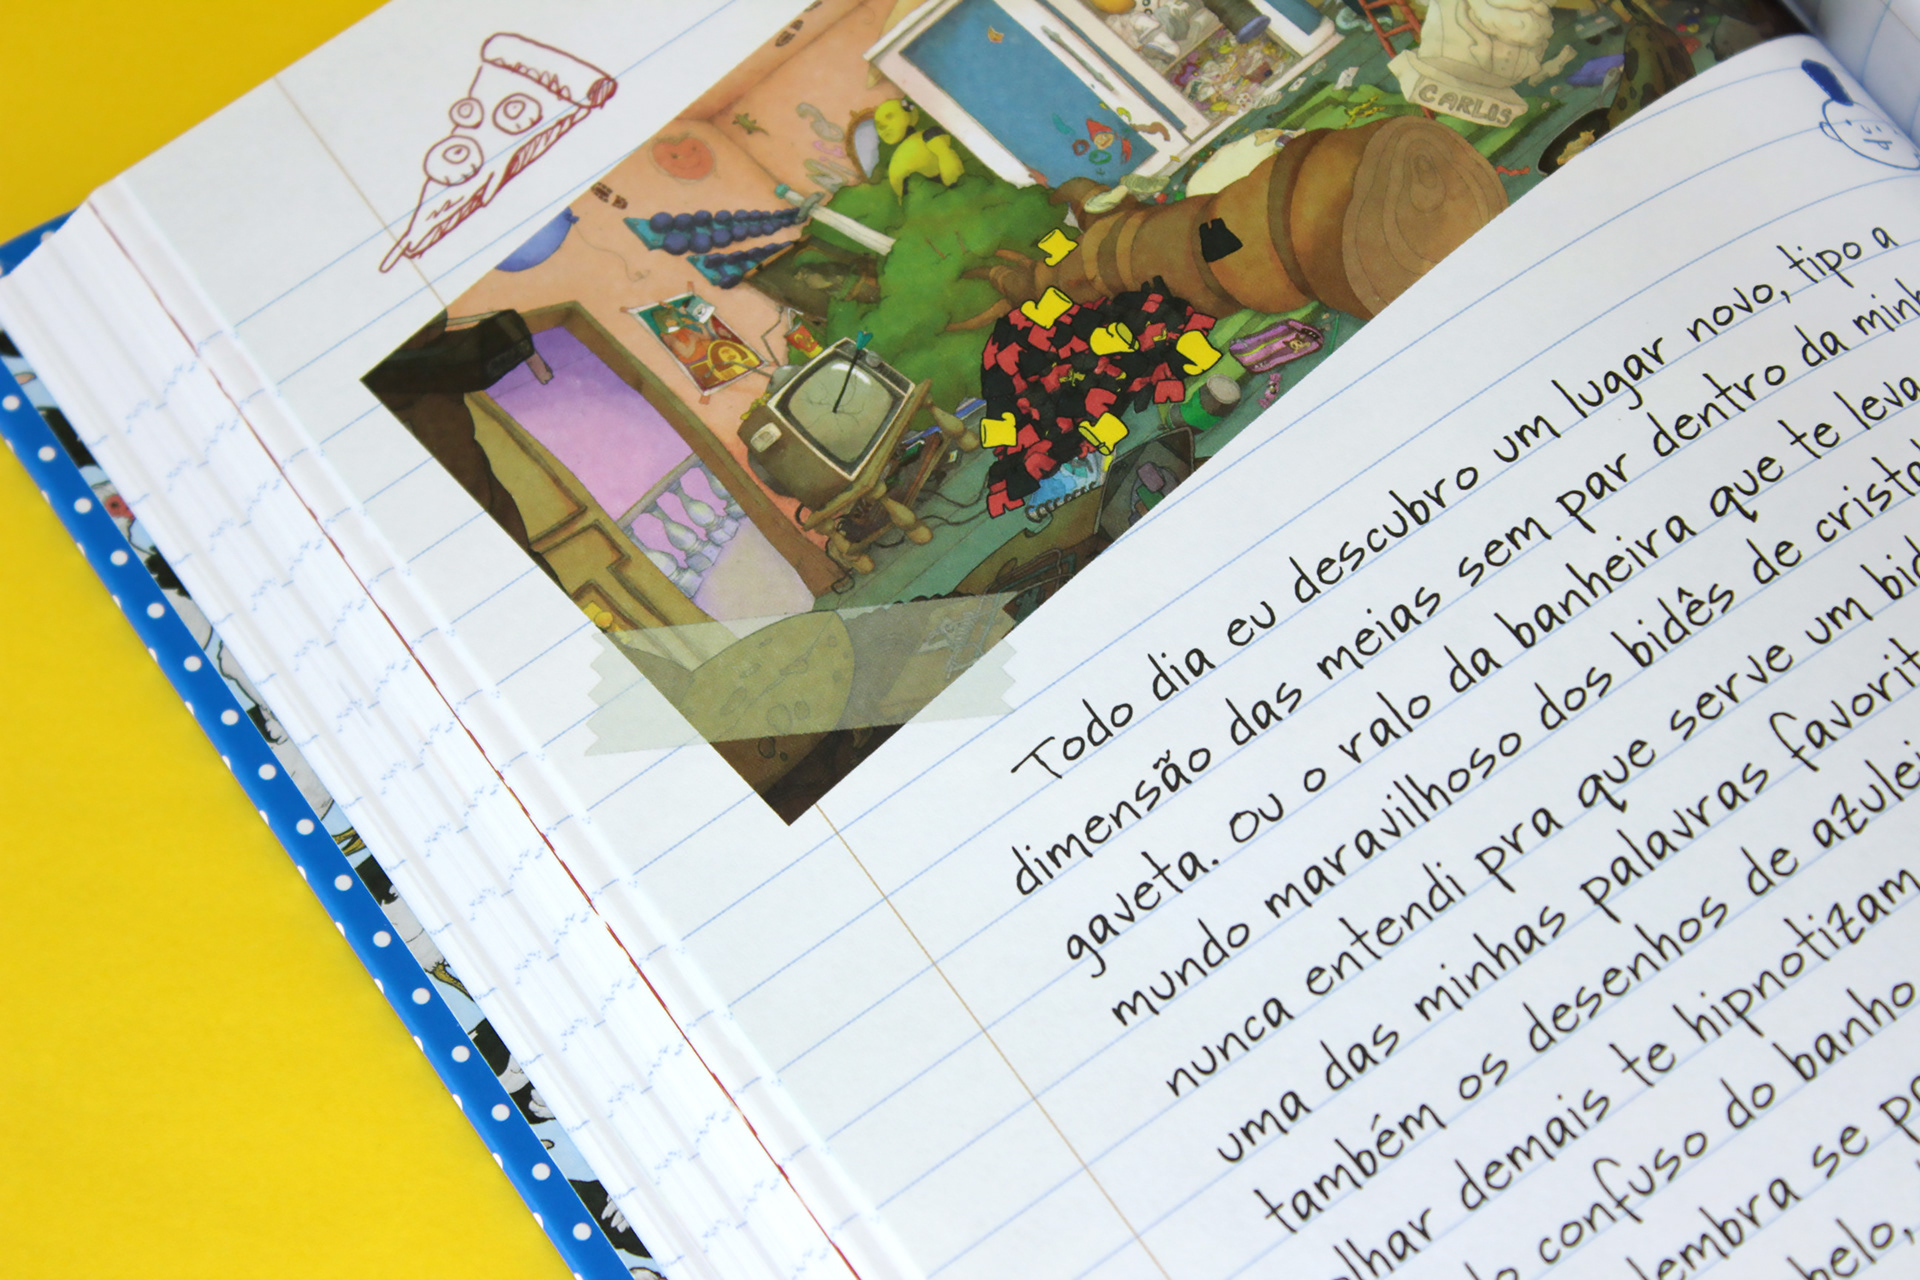 CARLOS
Todo dia eu descubro um lugar novo, tipo a
dimensão das meias sem par dentro da
gaveta. Ou o ralo da banheira que te leva
mundo maravilhoso dos bidês de
nunca entendi pra que serve um
uma das minhas palavras
também os desenhos de
demais te hipnotizam
confuso do banho
se